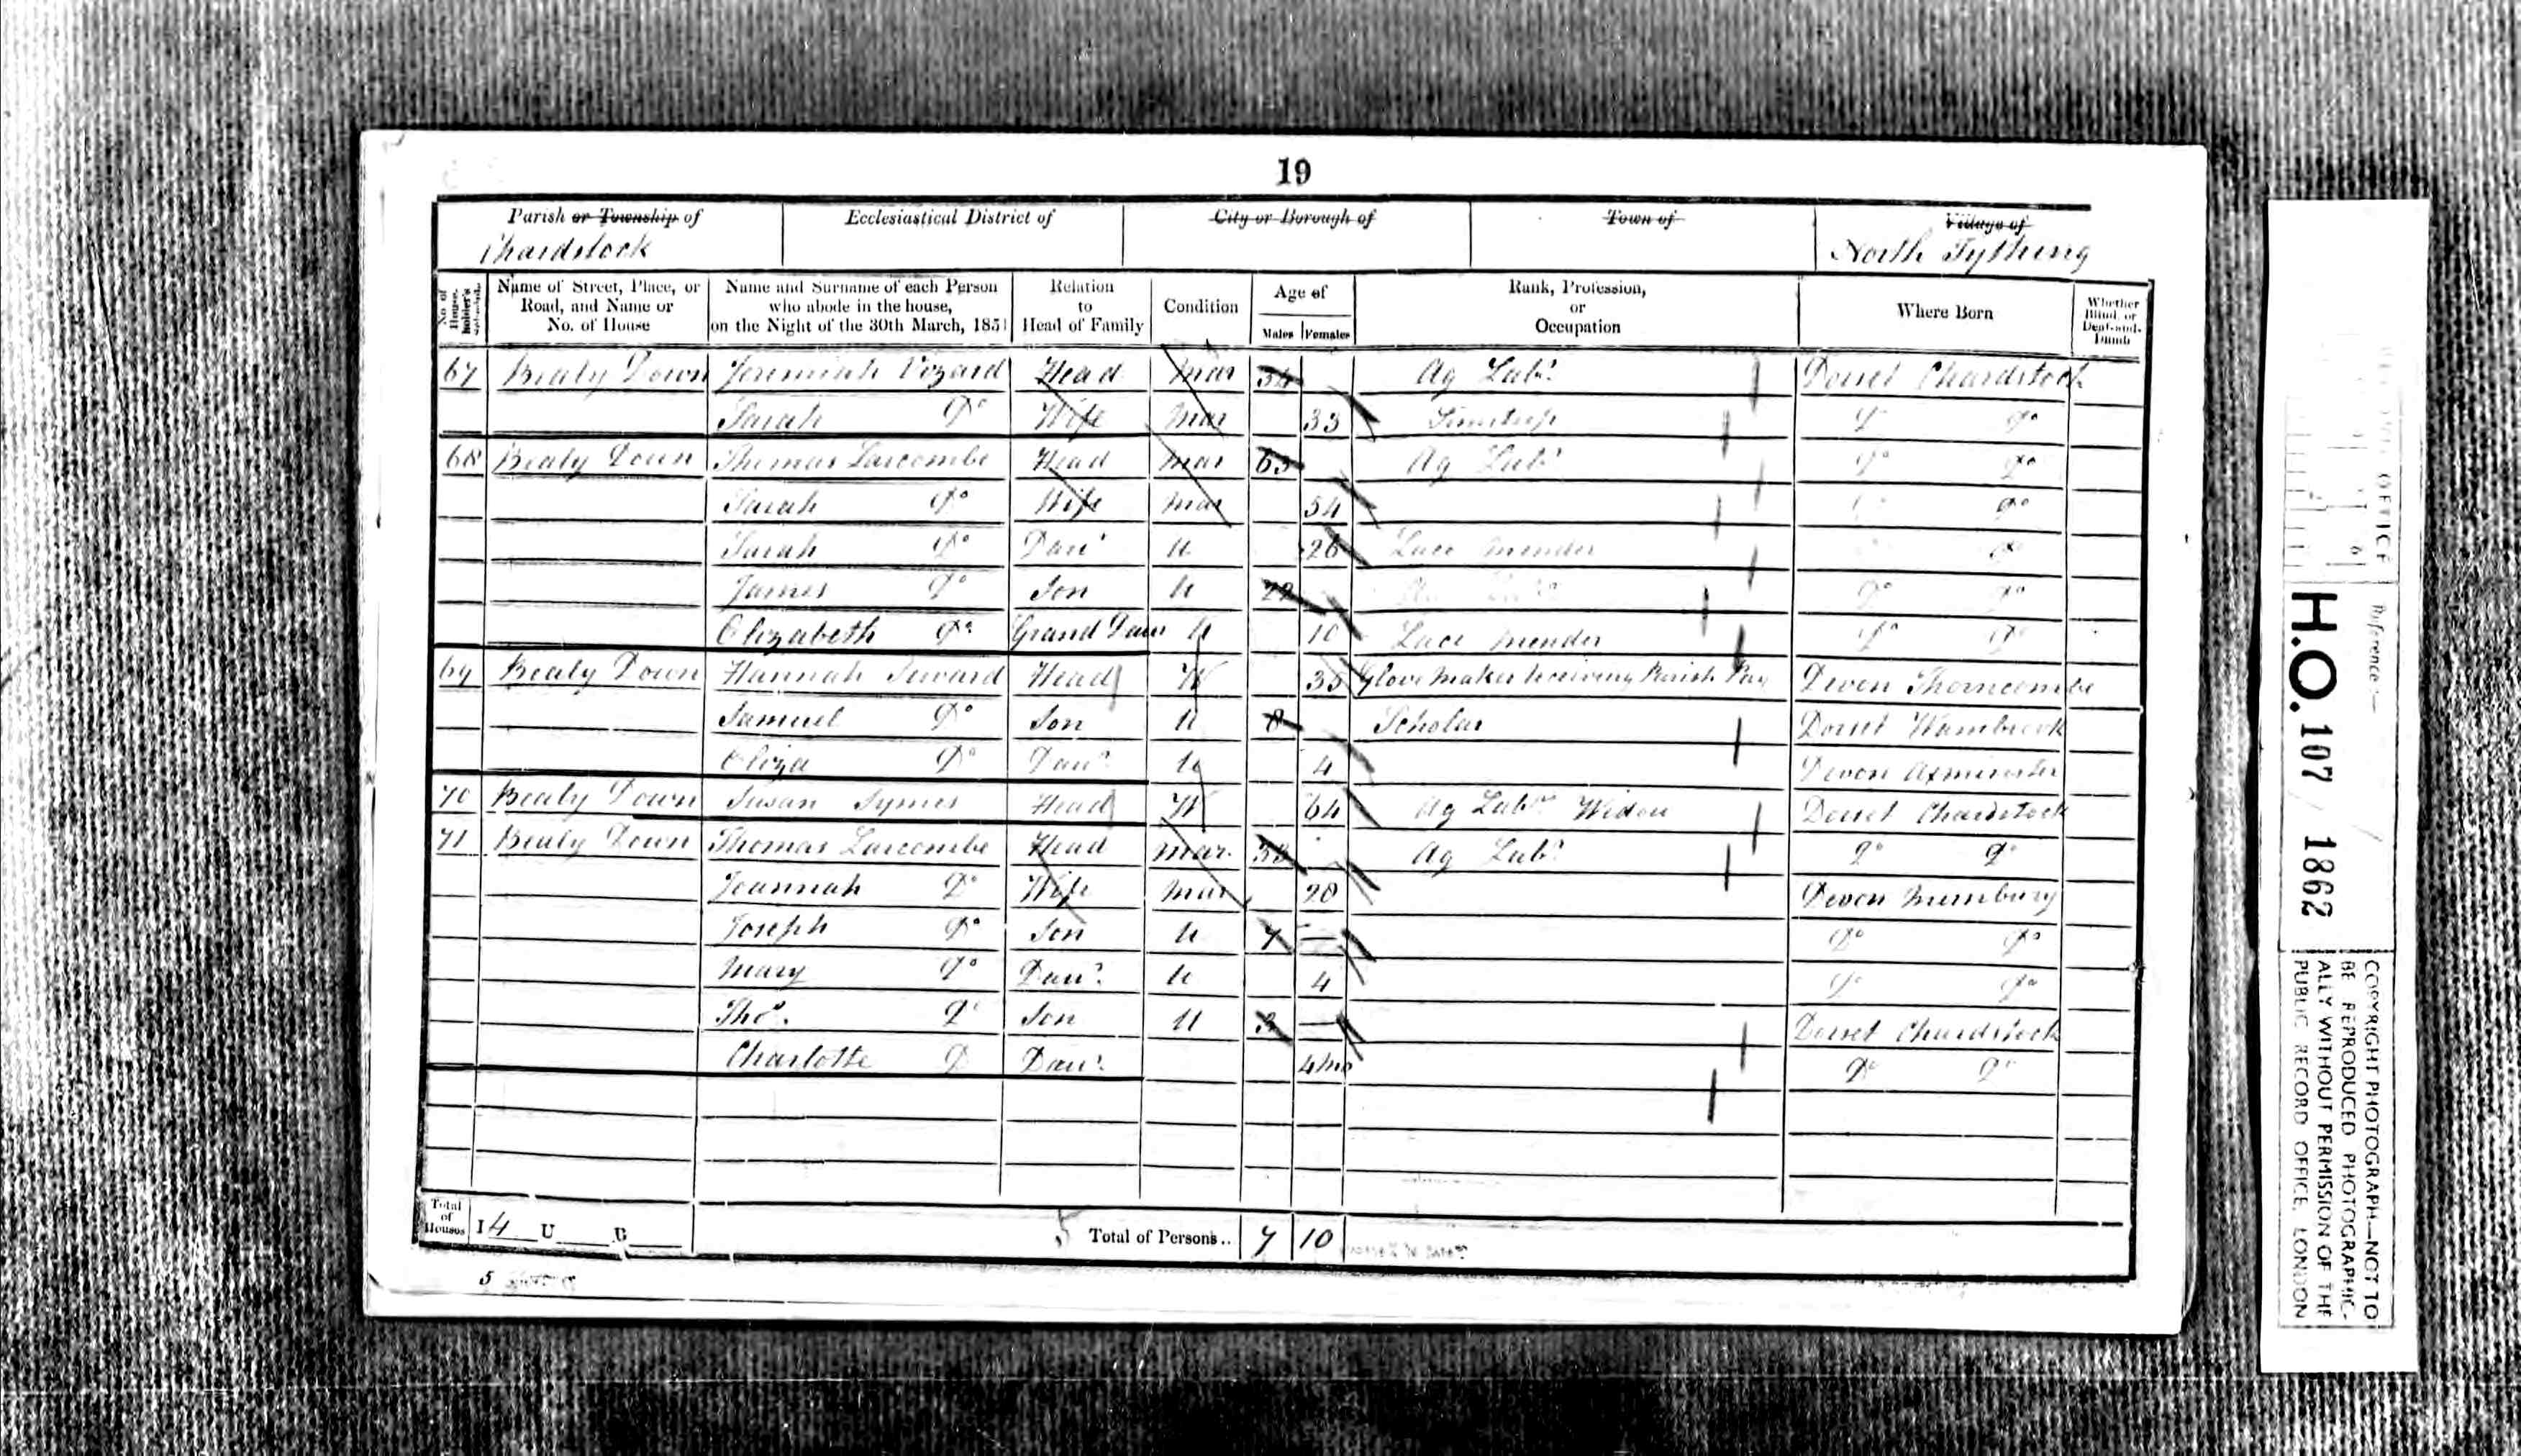 19
Parish or Township of
Chardstock
Ecclesiastical District of
City or Borough of
Town of
Village of
North Tything
No. of House-holder's Schedule
Name of Street, Place, or Road, and Name or No. of House
Name and Surname of each Person who abode in the house, on the Night of the 30th March, 1851
Relation to Head of Family
Condition
Age of
Males Females
Rank, Profession, or Occupation
Where Born
Whether Blind, or Deaf-and-Dumb
67 Bealy Down Jeremiah Vizard Head Mar 34 Ag Labr Dorset Chardstock
Sarah Do Wife Mar 33 Do Do
68 Bealy Down Thomas Larcombe Head Mar 63 Ag Labr Do Do
Sarah Do Wife Mar 54 Do
Sarah Do Daur U 26 Lace Mender Do
James Do Son U 22 Do Do
Elizabeth Do Grand Daur U 10 Lace Mender Do Do
69 Bealy Down Hannah Seward Head W 35 Glove Maker Receiving Parish Pay Devon Thorncombe
Samuel Do Son U 8 Scholar Dorset Wambrook
Eliza Do Daur U 4 Devon Axminster
70 Bealy Down Susan Symes Head W 64 Ag Labrs Widow Dorset Chardstock
71 Bealy Down Thomas Larcombe Head Mar. 38 Ag Labr Do Do
Joannah Do Wife Mar 28 Devon Membury
Joseph Do Son U 7 Do Do
Mary Do Daur U 4 Do Do
Thos. Do Son U Dorset Chardstock
Charlotte D Daur 4mo Do Do
Total of Houses I 4 U B 5 Total of Persons.. 7 10
5
OFFICE
Reference:—
H.O. 107 / 1862
COPYRIGHT PHOTOGRAPH—NOT TO
BE REPRODUCED PHOTOGRAPHIC-
ALLY WITHOUT PERMISSION OF THE
PUBLIC RECORD OFFICE, LONDON